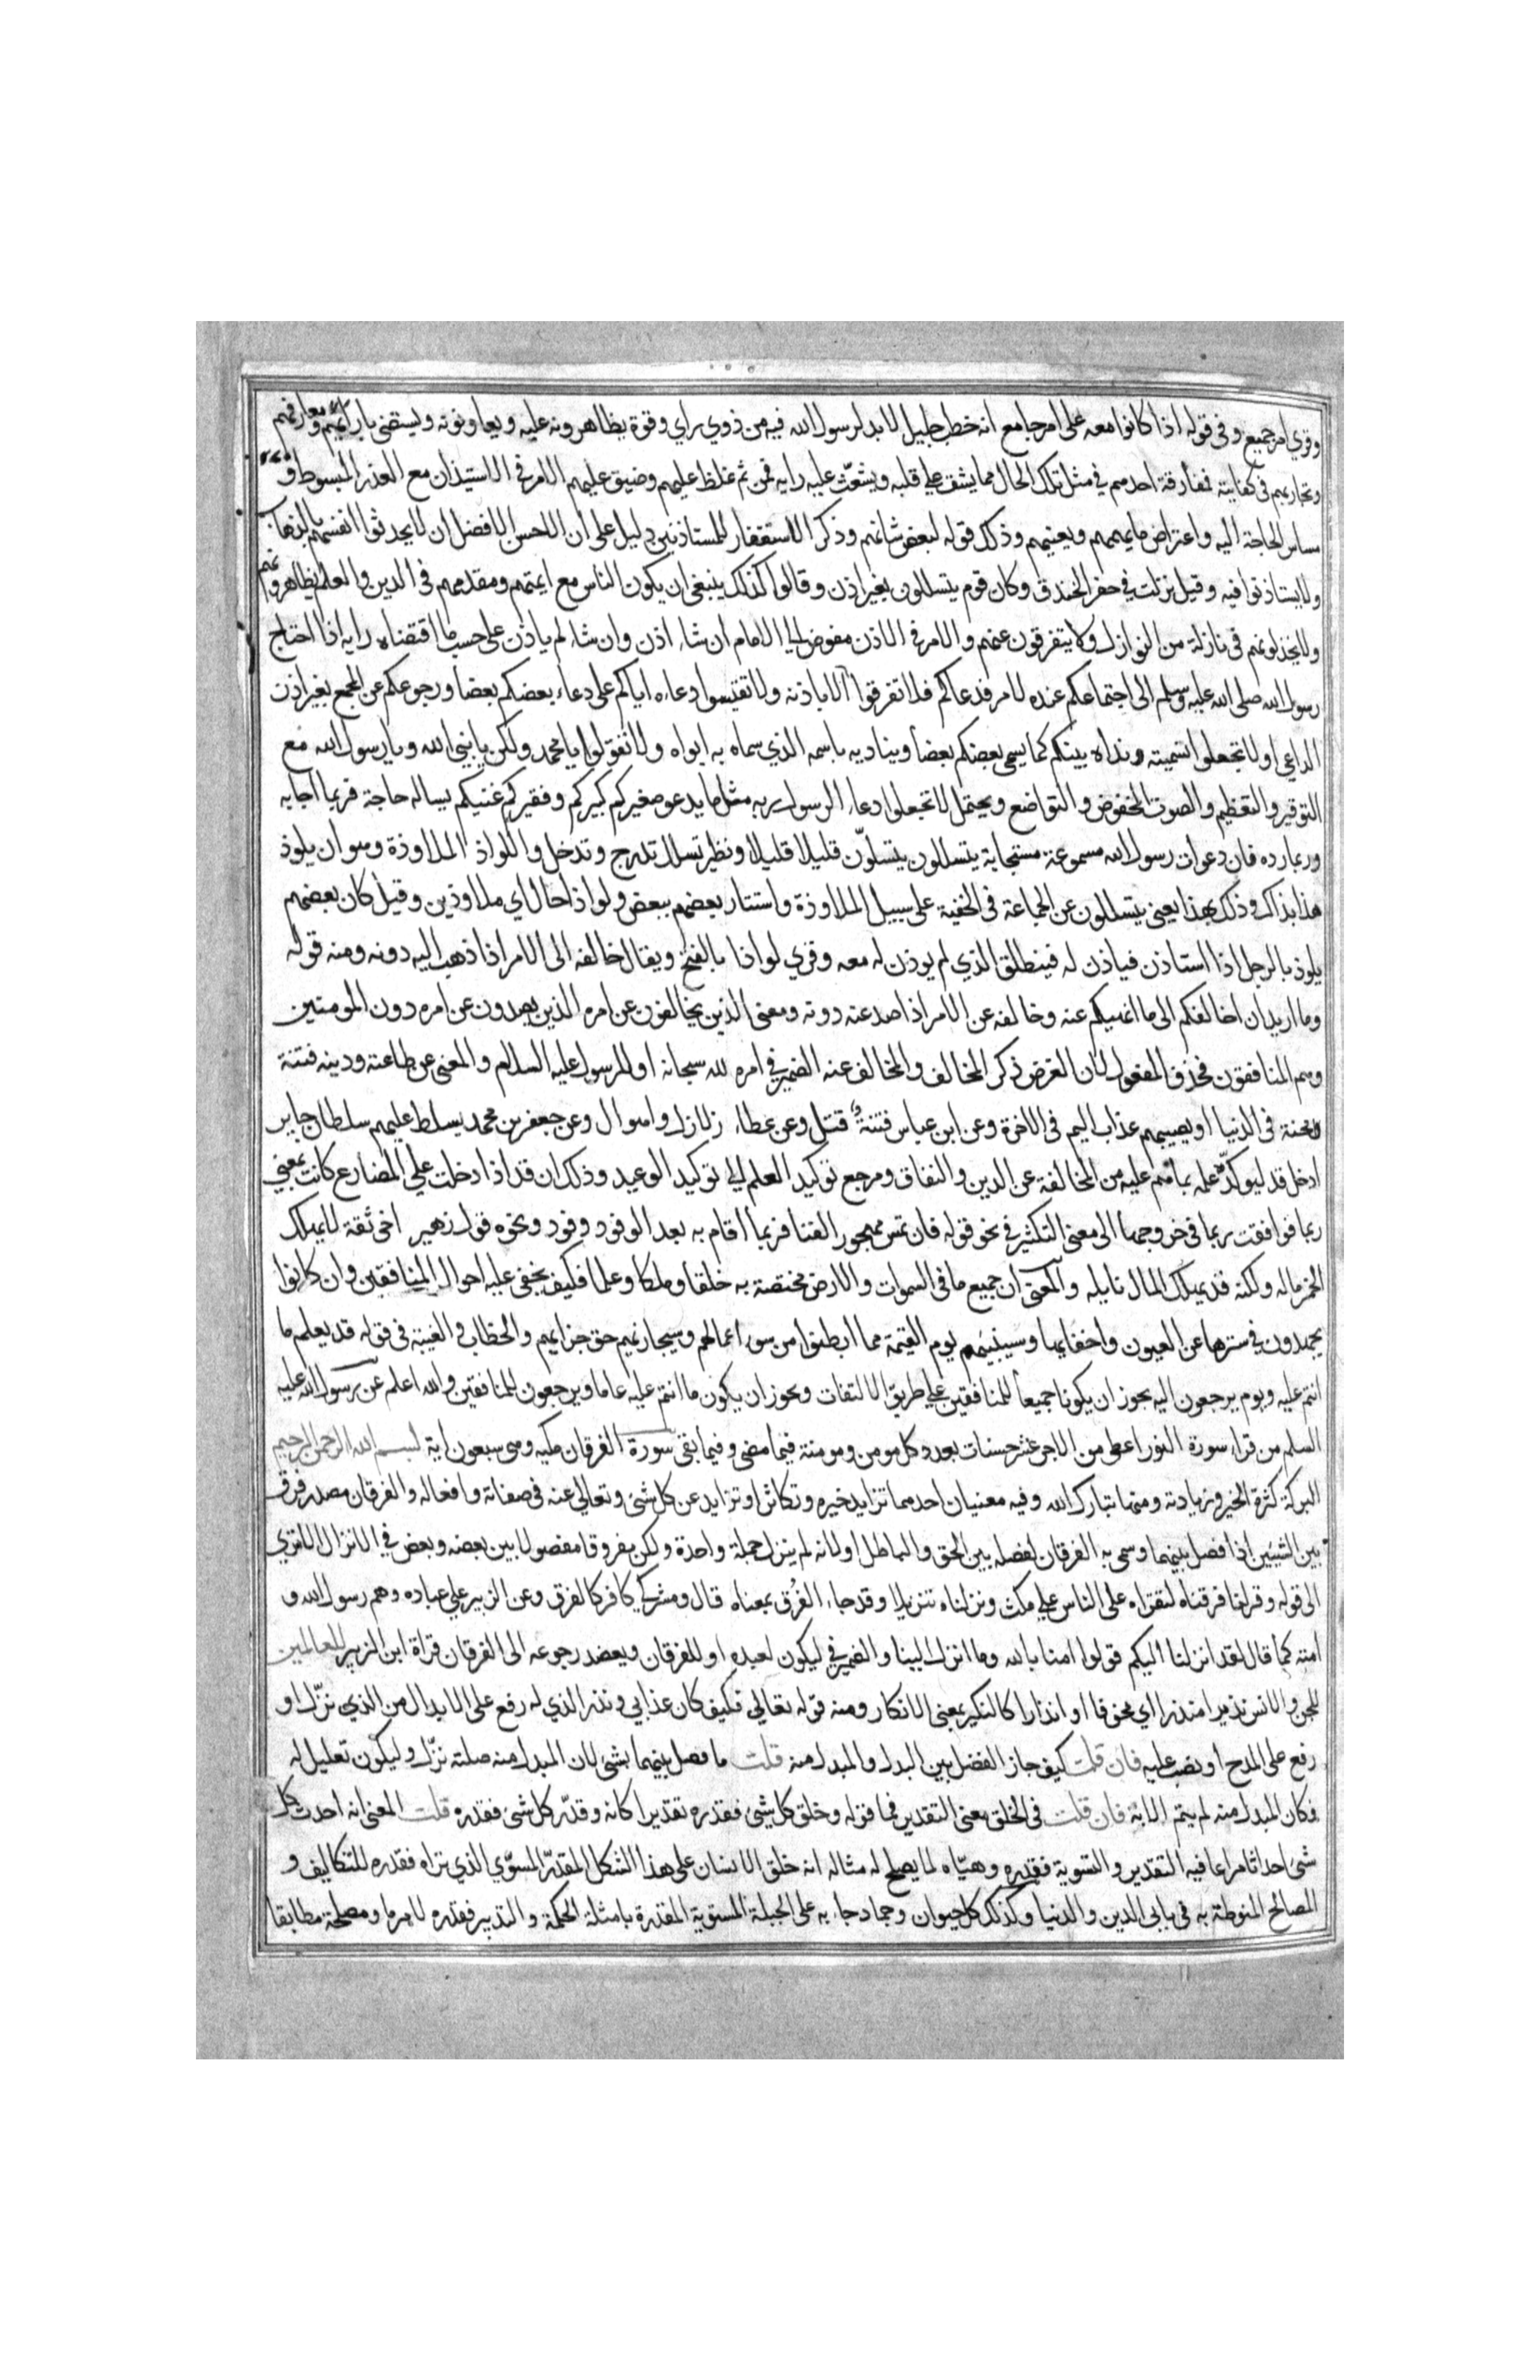 وقري امر جميع وفى قوله اذا كانوا معه على امر جامع انه خطب جليل لا بد لرسول الله فيه من ذوي راي وقوة يظاهرونه عليه ويعاونونه ويستضى بارائهم ومعارفهم
وتجاربهم فى كفايته فمفارقة احدهم في مثل تلك الحال مما يشق على قلبه ويشعّث عليه رايه فمن ثم غلظ عليهم وضيق عليهم الامر في الاستيذان مع العذر المبسوط و
مساس الحاجة اليه واعتراض ما يهمهم ويعنيهم وذلك قوله لبعض شانهم وذكر الاستغفار للمستاذنين دليل على ان الاحسن الافضل ان لا يحدثوا انفسهم بالذهاب
ولا يستاذنوا فيه وقيل نزلت في حفر الخندق وكان قوم يتسللون بغير اذن وقالوا كذلك ينبغي ان يكون الناس مع ايمتهم ومقدميهم فى الدين والعلم يظاهرونهم
ولا يخذلونهم فى نازلة من النوازل ولا يتفرقون عنهم والامر في الاذن مفوض الى الامام ان شاء اذن وان شاء لم ياذن على حسب ما اقتضاه رايه اذا احتاج
رسول الله صلى الله عليه وسلم الى اجتماعكم عنده لامر فدعاكم فلا تفرقوا الا باذنه ولا تقيسوا دعاءه اياكم على دعاء بعضكم بعضا ورجوعكم عن المجمع بغير اذن
الداعي او لا تجعلوا تسميته ونداه بينكم كما يسمى بعضكم بعضا ويناديه باسمه الذي سماه به ابواه ولا تقولوا يا محمد ولكن يا نبى الله ويا رسول الله مع
التوقير والتعظيم والصوت المخفوض والتواضع ويحتمل لا تجعلوا دعاء الرسول ربه مثل ما يدعو صغيركم كبيركم وفقيركم غنيكم يساله حاجة فربما اجابه
وربما رده فان دعوات رسول الله مسموعة مستجابة يتسللون يتسلون قليلا قليلا ونظير تسلل تدرج وتدخل واللواذ الملاوذة وهو ان يلوذ
هذا بذاك وذلك بهذا يعنى يتسللون عن الجماعة فى الخفية على سبيل الملاوذة واستتار بعضهم ببعض ولواذا حال اي ملاوذين وقيل كان بعضهم
يلوذ بالرجل اذا استاذن فياذن له فينطلق الذي لم يوذن له معه وقري لواذا بالفتح ويقال خالفه الى الامر اذا ذهب اليه دونه ومنه قوله
وما اريد ان اخالفكم الى ما انهيكم عنه وخالفه عن الامر اذا صد عنه دونه ومعنى الذين يخالفون عن امره الذين يصدون عن امره دون المومنين
وهم المنافقون فحذف المفعول لان الغرض ذكر المخالف والمخالف عنه الضمير في امره لله سبحانه او للرسول عليه السلام والمعنى عن طاعته ودينه فتنة
محنة فى الدنيا او يصيبهم عذاب اليم فى الاخرة وعن ابن عباس فتنة قتل وعن عطاء زلازل واهوال وعن جعفر بن محمد يسلط عليهم سلطان جاير
ادخل قد ليوكد علمه بما هم عليه من المخالفة عن الدين والنفاق ومرجع توكيد العلم الى توكيد الوعيد وذلك ان قد اذا دخلت على المضارع كانت بمعنى
ربما فوافقت ربما في خروجها الى معنى التكثير في نحو قوله فان تمس مهجور الفنا فربما اقام به بعد الوفود وفود ونحوه قول زهير اخى ثقة لا يهلك
الخمر ماله ولكنه قد يهلك المال نايله والمعنى ان جميع ما فى السموات والارض مختصة به خلقا وملكا وعلما فكيف يخفى عليه احوال المنافقين وان كانوا
يجتهدون في سترها عن العيون واخفايها وسينبئهم يوم القيمة مما ابطنوا من سوء اعمالهم وسيجازيهم حق جزايهم والخطاب والغيبة فى قوله قد يعلم ما
انتم عليه ويوم يرجعون اليه يجوز ان يكونا جميعا للمنافقين على طريق الالتفات ويجوز ان يكون ما انتم عليه عاما ويرجعون للمنافقين والله اعلم عن رسول الله عليه
السلم من قراء سورة النور اعطى من الاجر عشر حسنات بعدد كل مومن ومومنة فيما مضى وفيما بقى سورة الفرقان مكيه وهى سبعون اية بسم الله الرحمن الرحيم
البركة كثرة الخير وزيادته ومنها تبارك الله وفيه معنيان احدهما تزايد خيره وتكاثر او تزايد عن كل شئ وتعالى عنه فى صفاته وافعاله والفرقان مصدر فرق
بين الشيئين اذا فصل بينهما وسمى به الفرقان لفصله بين الحق والباطل او لانه لم ينزل جملة واحدة ولكن مفروقا مفصولا بين بعضه وبعض في الانزال الا ترى
الى قوله وقرانا فرقناه لتقراه على الناس على مكث ونزلناه تنزيلا وقد جاء الفرق بمعناه قال ومشركي كافر كالفرق وعن الزبير على عباده وهم رسول الله و
امته كما قال لقد انزلنا اليكم قولوا امنا بالله وما انزل الينا والضمير في ليكون لعبده او للفرقان ويعضد رجوعه الى الفرقان قراة ابن الزبير للعالمين
للجن والانس نذيرا منذرا اي مخوفا او انذارا كالنكير بمعنى الانكار ومنه قوله تعالى فكيف كان عذابي ونذر الذي له رفع على الابدال من الذي نزّل او
رفع على المدح او نصب عليه فان قلت كيف جاز الفصل بين البدل والمبدل منه قلت ما فصل بينهما بشئ لان المبدل منه صلته نزّل وليكون تعليل له
فكان المبدل منه لم يتم الا به فان قلت فى الخلق معنى التقدير فما قوله وخلق كل شئ فقدره تقديرا كانه وقدّر كل شئ فقدره قلت المعنى انه احدث كل
شئ احداثا مراعا فيه التقدير والتسوية فقدره وهيّاه لما يصلح له مثاله انه خلق الانسان على هذا الشكل المقدّر المسوّي الذي تراه فقدره للتكاليف و
المصالح المنوطة به فى بابى الدين والدنيا وكذلك كل حيوان وجماد جاء به على الجبلة المستوية المقدرة بامثلة الحكمة والتدبير فقدره لامر ما ومصلحة مطابقا